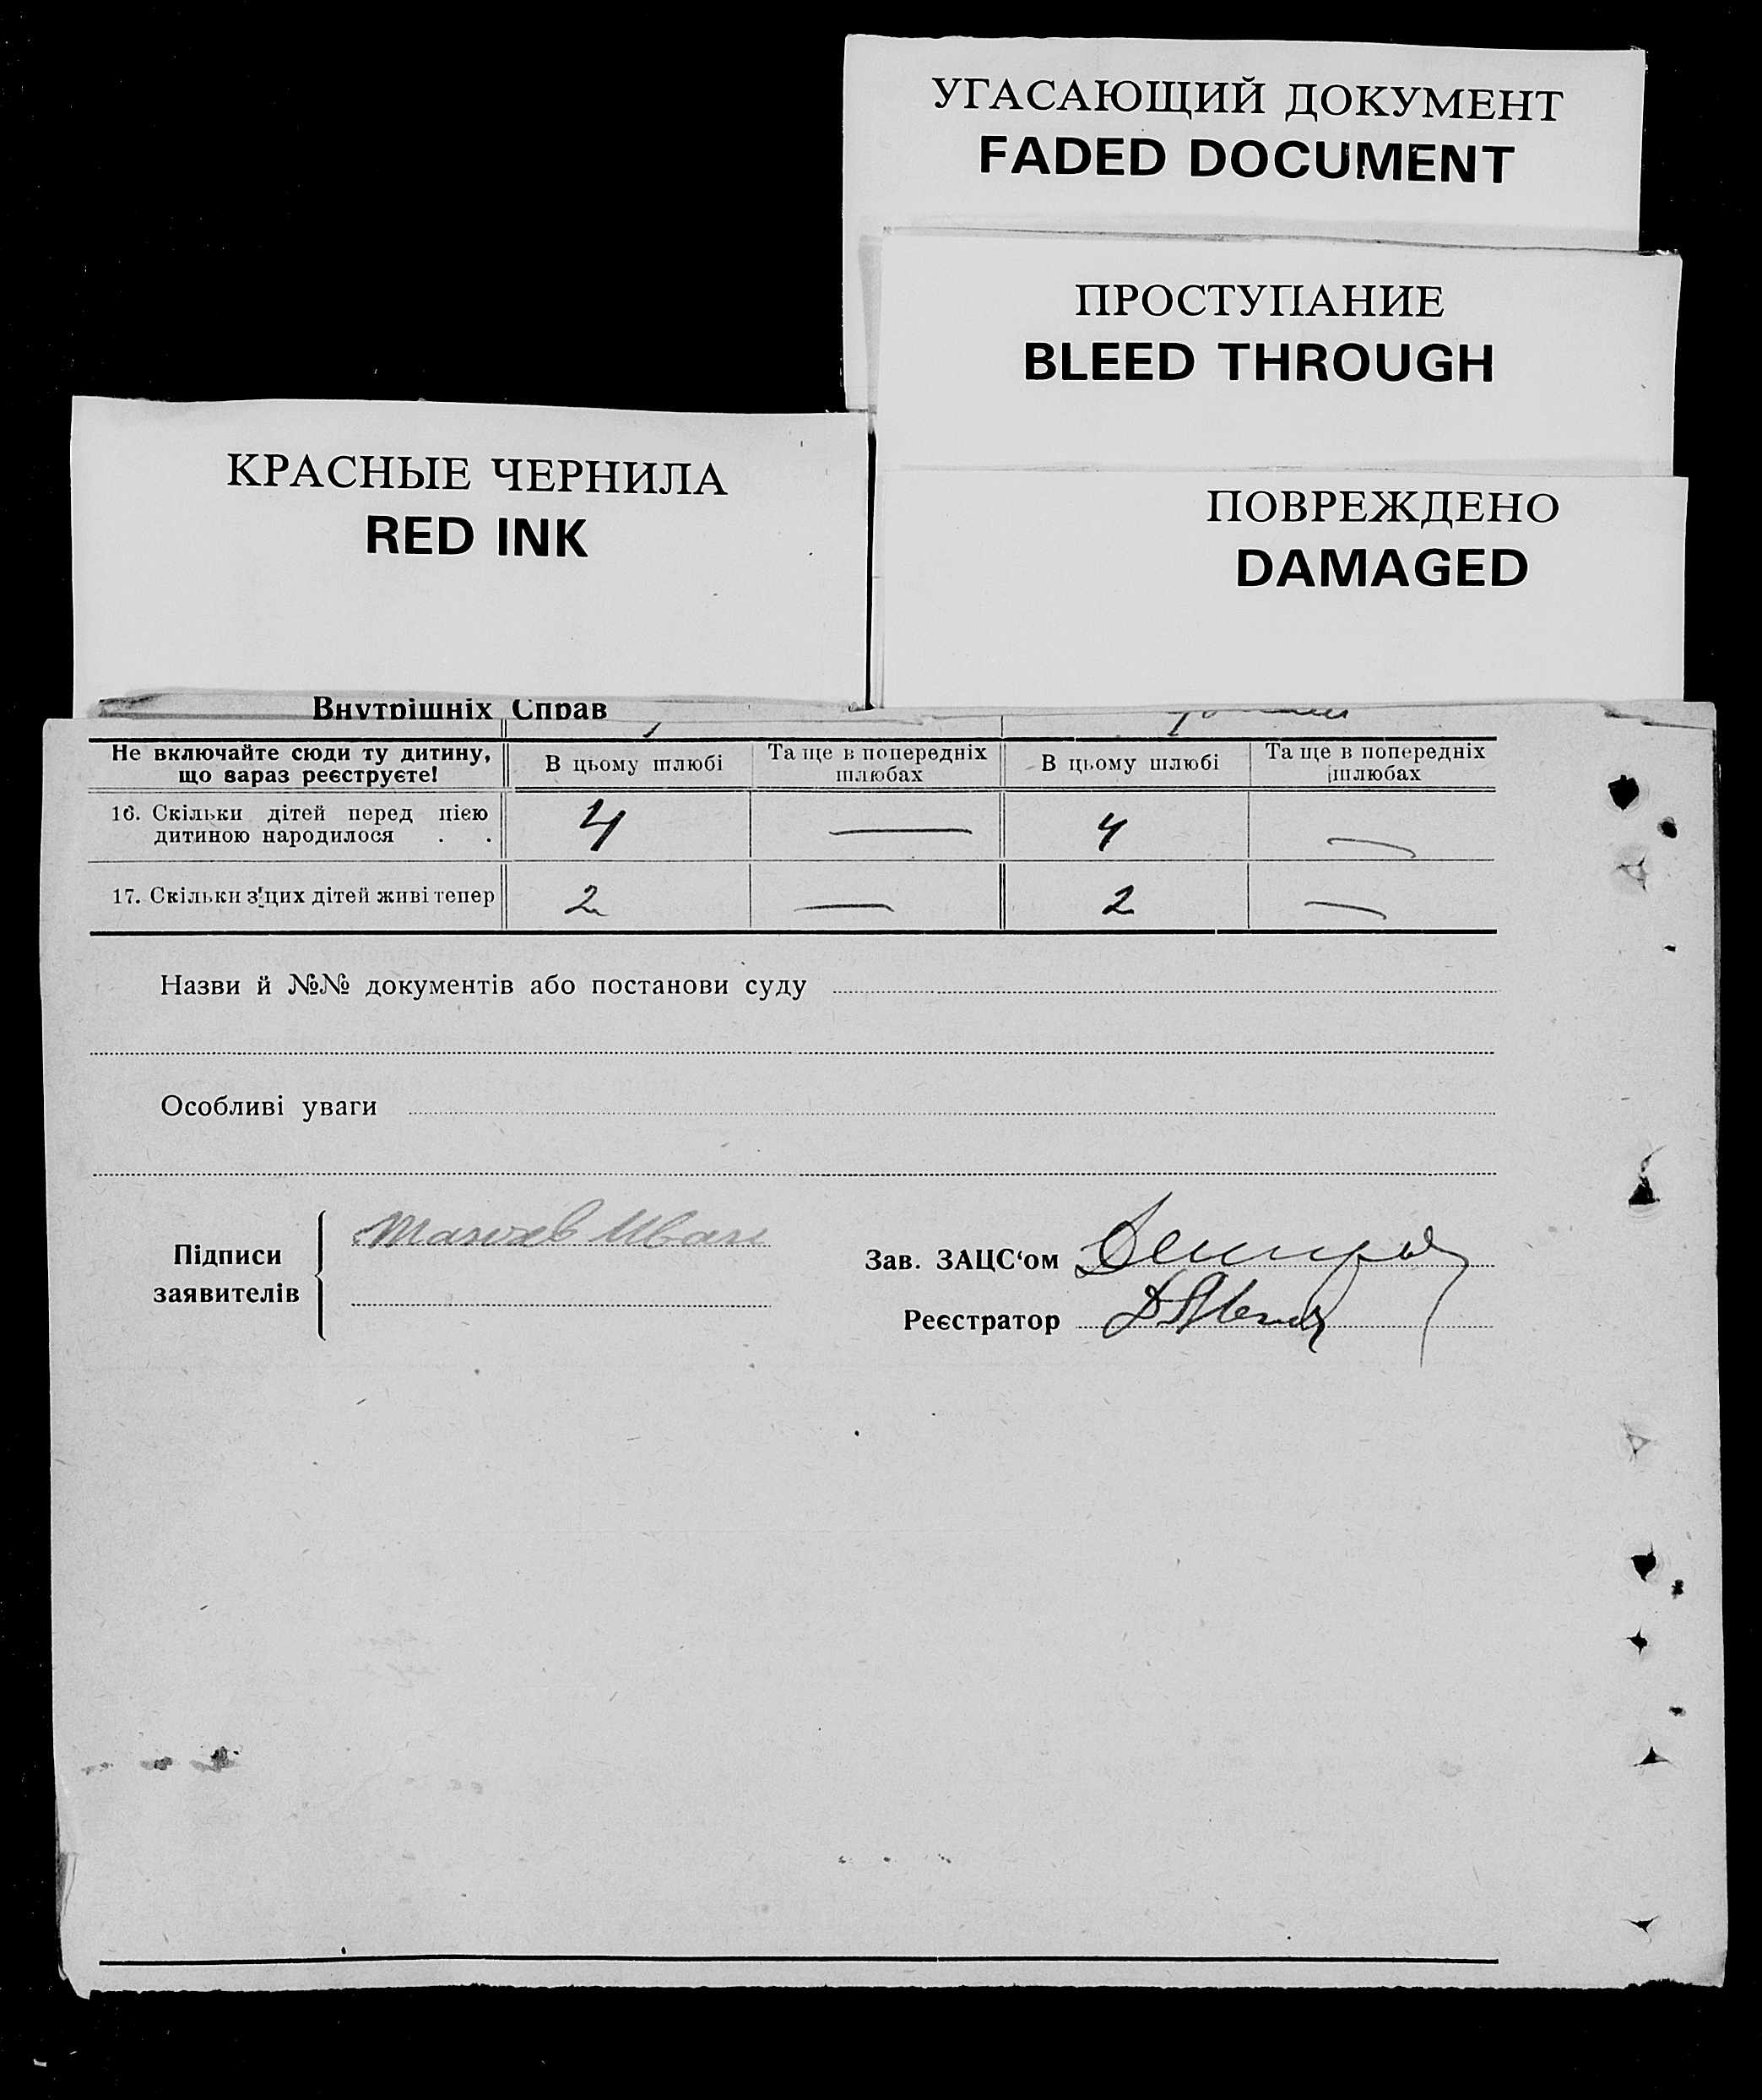 УГАСАЮЩИЙ ДОКУМЕНТ
FADED DOCUMENT
ПРОСТУПАНИЕ
BLEED THROUGH
КРАСНЫЕ ЧЕРНИЛА
RED INK
ПОВРЕЖДЕНО
DAMAGED
Внутрішніх Справ
Не включайте сюди ту дитину, що вараз реєструєте!
В цьому шлюбі
Та ще в попередніх шлюбах
В цьому шлюбі
Та ще в попередніх шлюбах
16. Скільки дітей перед цією дитиною народилося . . 4 — 4 —
17. Скільки з'цих дітей живі тепер 2 — 2 —
Назви й №№ документів або постанови суду
Особливі уваги
Підписи заявителів
Иван
Зав. ЗАЦС‘ом
Реєстратор